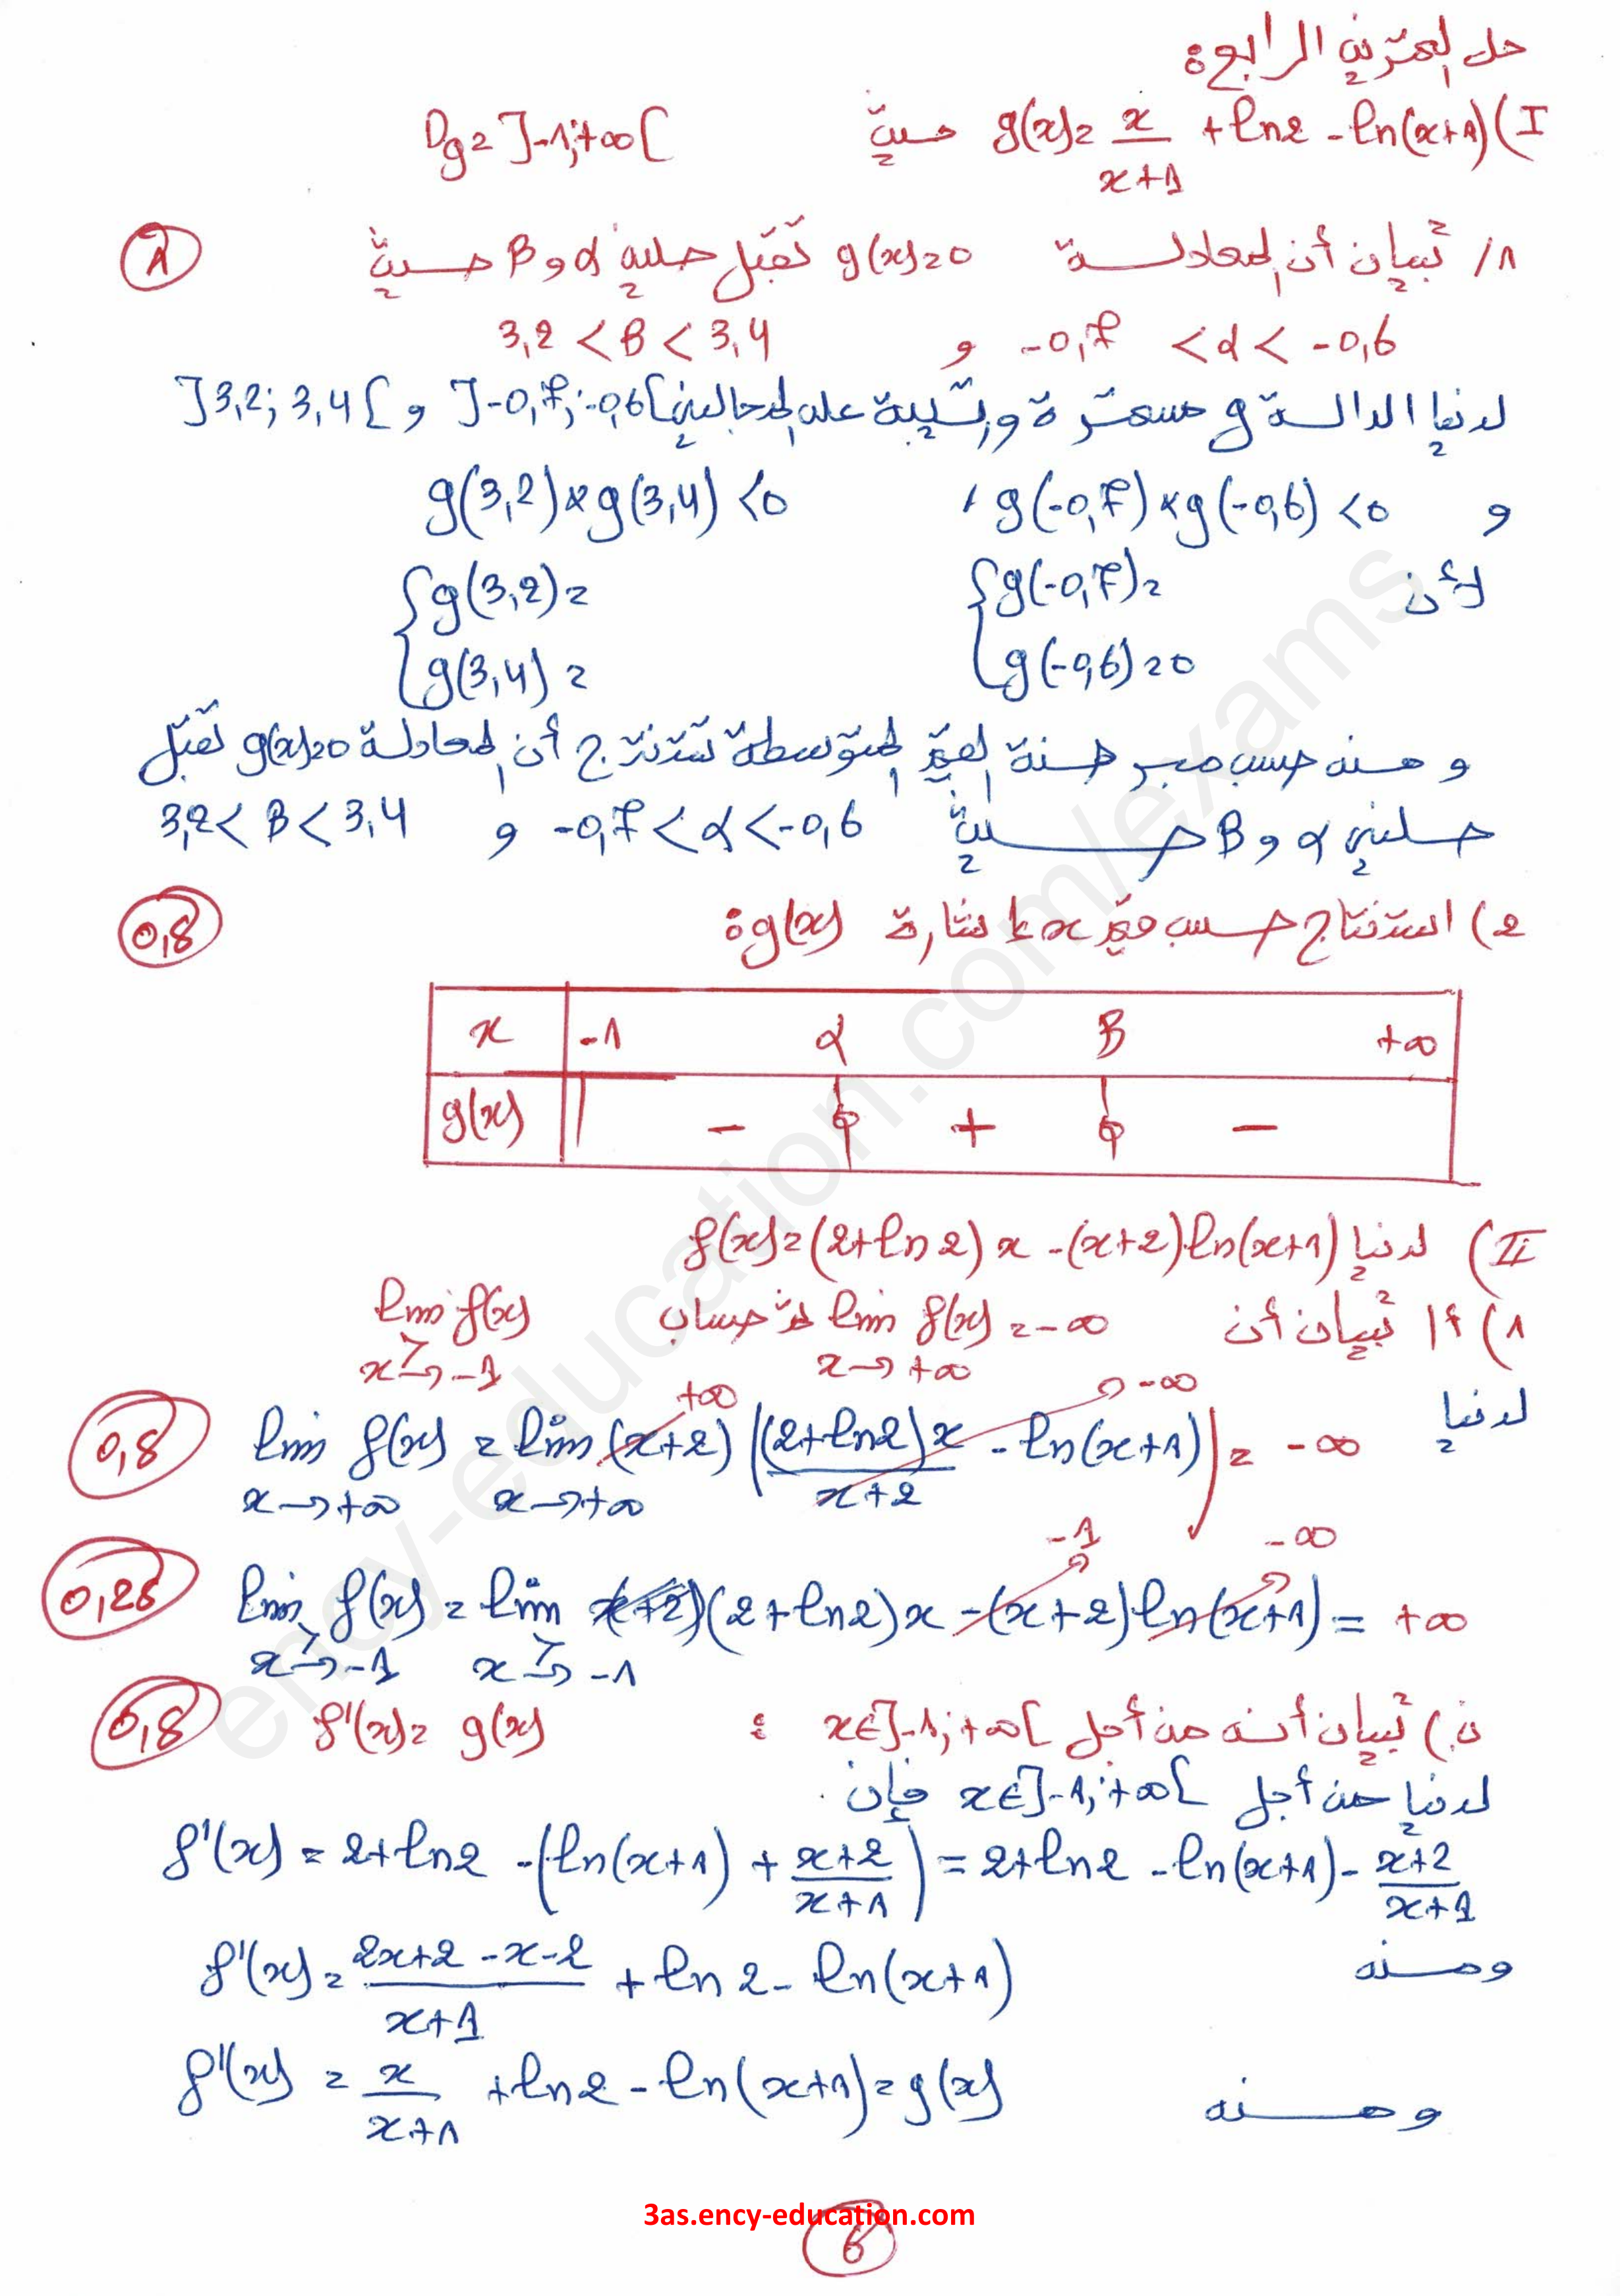 حل التمرين الرابع:
I) g(x) = x/(x+1) + ln2 - ln(x+1) حيث Dg = ]-1; +∞[
1/ تبيان أن المعادلة g(x)=0 تقبل حلين α و β حيث (1)
-0,7 < α < -0,6 و 3,2 < β < 3,4
لدينا الدالة g مستمرة ورتيبة على المجالين ]-0,7; -0,6[ و ]3,2; 3,4[
و g(-0,7) × g(-0,6) < 0 , g(3,2) × g(3,4) < 0
لأن { g(-0,7) = { g(3,2) =
g(-0,6) = 0 g(3,4) =
و منه حسب مبرهنة القيم المتوسطة نستنتج أن المعادلة g(x)=0 تقبل
حلين α و β حيث -0,7 < α < -0,6 و 3,2 < β < 3,4
2) استنتاج حسب قيم x إشارة g(x): (0,5)
x -1 α β +∞
g(x) || - 0 + 0 -
II) لدينا f(x) = (2+ln2)x - (x+2)ln(x+1)
1) أ/ تبيان أن lim f(x) = -∞ ثم حساب lim f(x)
x→+∞ x→>-1
+∞ -∞
لدينا lim f(x) = lim (x+2) ( (2+ln2)x/(x+2) - ln(x+1) ) = -∞ (0,5)
x→+∞ x→+∞
-1 -∞
lim f(x) = lim (2+ln2)x - (x+2) ln(x+1) = +∞ (0,25)
x→>-1 x→>-1
ب) تبيان أنه من أجل x∈]-1; +∞[ : f'(x) = g(x) (0,5)
لدينا من أجل x∈]-1; +∞[ فإن
f'(x) = 2+ln2 - (ln(x+1) + (x+2)/(x+1)) = 2+ln2 - ln(x+1) - (x+2)/(x+1)
ومنه f'(x) = (2x+2-x-2)/(x+1) + ln2 - ln(x+1)
ومنه f'(x) = x/(x+1) + ln2 - ln(x+1) = g(x)
3as.ency-education.com
6
ency-education.com/exams